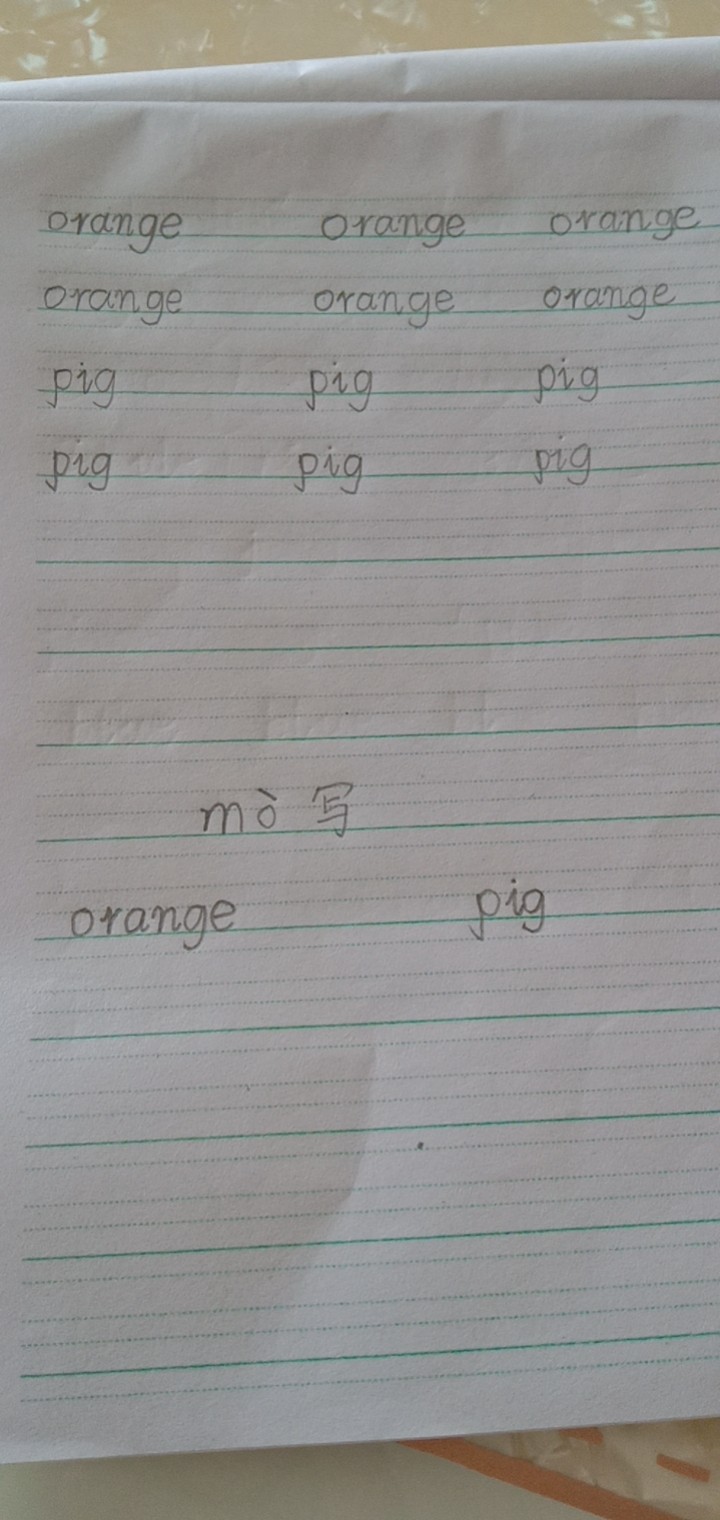 orange orange orange
orange orange orange
pig pig pig
pig pig pig
mò 写
orange pig